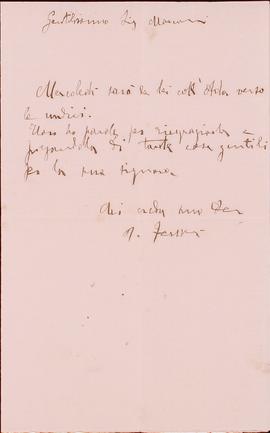 Gentilissimo Sig
Mercoledì sarò da lei coll' Ada verso
le undici.
Non ho parole per ringraziarla e
pregandola di tante cose gentili
per la sua signora
mi creda suo